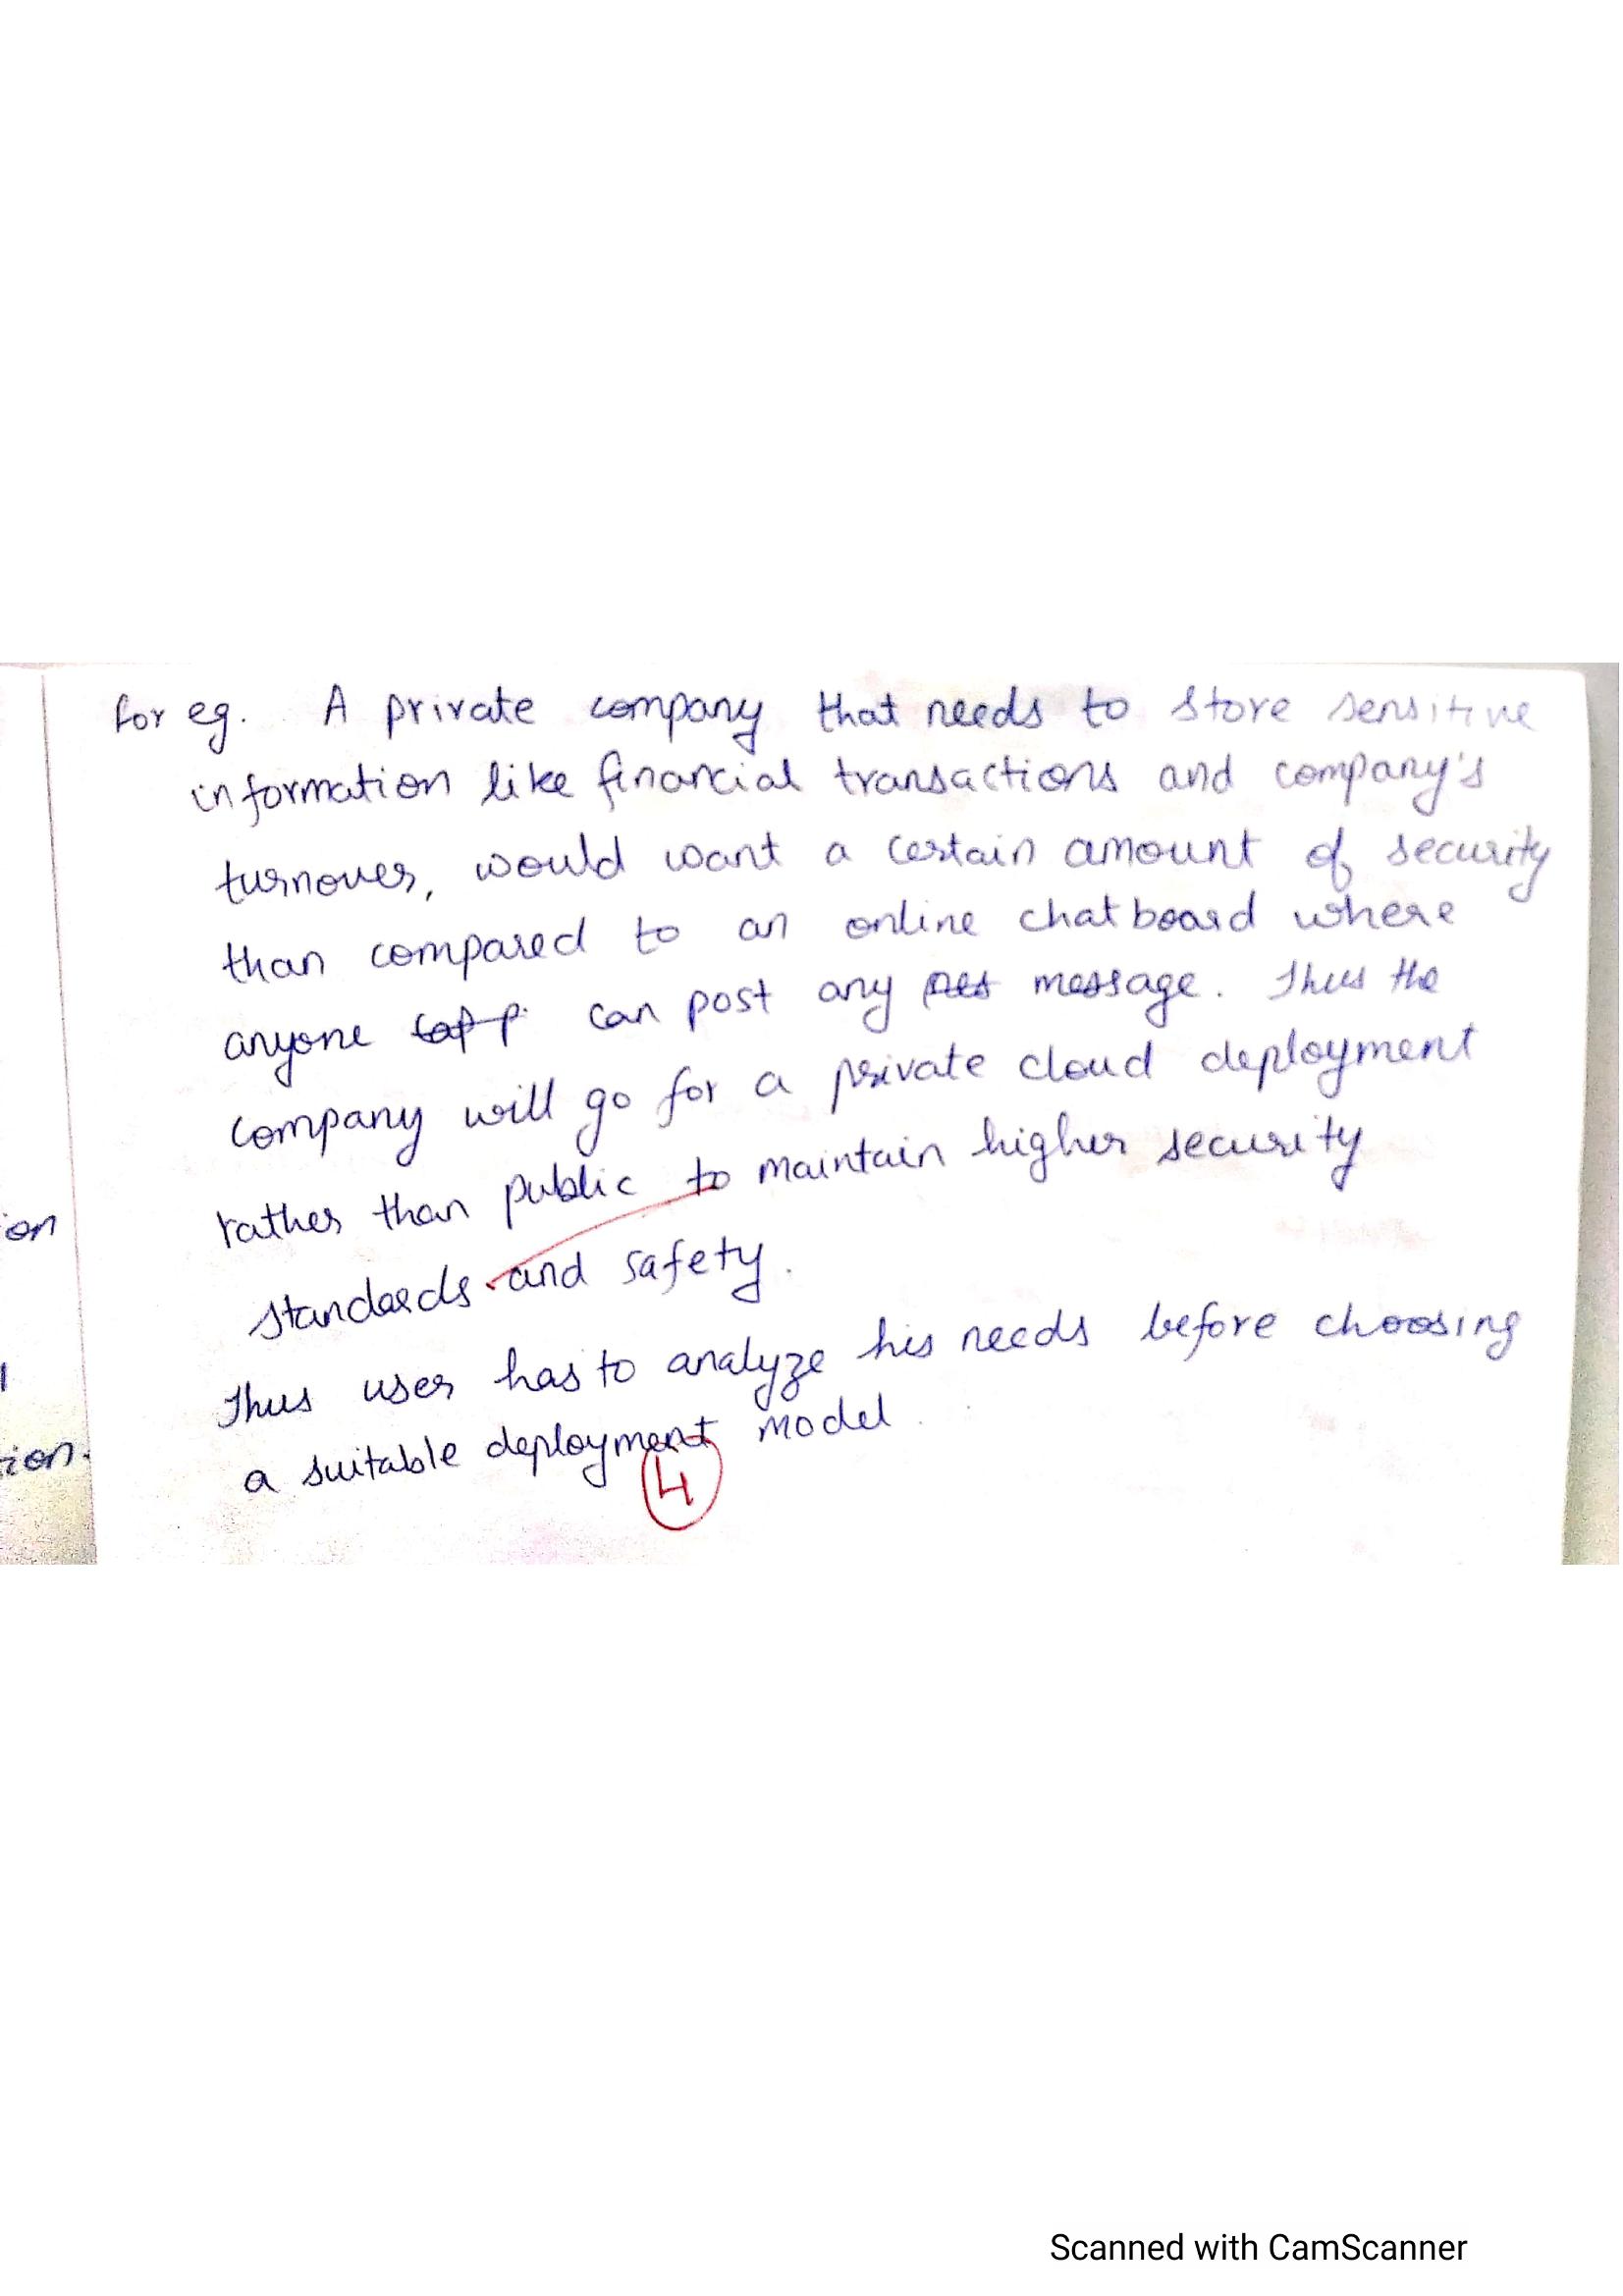 for eg. A private company that needs to store sensitive
information like financial transactions and company's
turnover, would want a certain amount of security
than compared to an online chatboard where
anyone can post any message. Thus the
company will go for a private cloud deployment
rather than public to maintain higher security
standards and safety.
Thus user has to analyze his needs before choosing
a suitable deployment model.
4
ion
ion.
Scanned with CamScanner